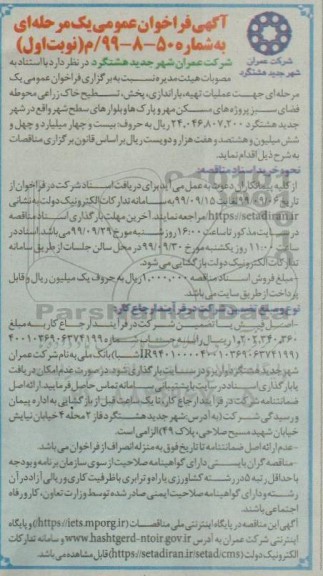 آگهی فراخوان عمومی یک مرحله‌ای
به شماره ۵۰-۸-۹۹/م (نوبت اول)
شرکت عمران
شهر جدید هشتگرد
شرکت عمران شهر جدید هشتگرد در نظر دارد با استناد به
مصوبات هیئت مدیره نسبت به برگزاری فراخوان عمومی یک
مرحله ای جهت عملیات تهیه، باراندازی، پخش، تسطیح خاک زراعی محوطه
فضای سبز پروژه های مسکن مهر و پارک ها و بلوارهای سطح شهر واقع در شهر
جدید هشتگرد ۲۴،۰۴۶،۸۰۷،۲۰۰ ریال به حروف: بیست و چهار میلیارد و چهل و
شش میلیون و هشتصد و هفت هزار و دویست ریال بر اساس قانون برگزاری مناقصات
به شرح ذیل اقدام نماید.
نحوه خرید اسناد مناقصه:
از کلیه پیمانکاران دعوت به عمل می آید برای دریافت اسناد شرکت در فراخوان از
به سامانه تدارکات الکترونیک دولت به نشانی
https://setadiran.ir مراجعه نمایند. آخرین مهلت بارگذاری اسناد مناقصه
در سایت مذکور تا ساعت ۱۶:۰۰ روز شنبه مورخ ۹۹/۰۹/۲۹ می باشد. اسناد در
ساعت ۱۱:۰۰ روز یکشنبه مورخ ۹۹/۰۹/۳۰ در محل سالن جلسات از طریق سامانه
تدارکات الکترونیک دولت بازگشایی می شود.
مبلغ فروش اسناد مناقصه ۱،۰۰۰،۰۰۰ ریال به حروف یک میلیون ریال و قابل
پرداخت از طریق سایت می باشد.
شرکت در فرآیند ارجاع کار:
شرکت در فرآیند ارجاع کار به مبلغ
بانک ملی به نام شرکت عمران
شهر جدید هشتگرد
در صورت عدم امکان دریافت
یا بارگذاری اسناد در سایت با پشتیبانی سامانه تماس حاصل فرمایید. ارائه اصل
ضمانتنامه شرکت در فرآیند ارجاع کار، تا یک ساعت قبل از بازگشایی به اداره پیمان
و رسیدگی شرکت (به آدرس: شهر جدید هشتگرد فاز ۲ محله ۴ خیابان نیایش
خیابان شهید مسیح صلاحی، پلاک ۴۹) الزامی است.
-عدم ارائه اصل ضمانتنامه تا تاریخ فوق به منزله انصراف از فراخوان می باشد.
-مناقصه گران بایستی دارای گواهینامه صلاحیت از سوی سازمان برنامه و بودجه
با حداقل رتبه ۵ در رشته کشاورزی یا راه و ترابری با ظرفیت کاری و ریالی آزاد در آن
رشته و دارای گواهینامه صلاحیت ایمنی صادر شده توسط وزارت تعاون، کار و رفاه
اجتماعی باشند.
آگهی این مناقصه در پایگاه اینترنتی ملی مناقصات (https://iets.mporg.ir) و پایگاه
اینترنتی شرکت عمران به آدرس www.hashtgerd-ntoir.gov.ir و سامانه تدارکات
الکترونیک دولت (https://setadiran.ir/setad/cms) قابل مشاهده می باشد.